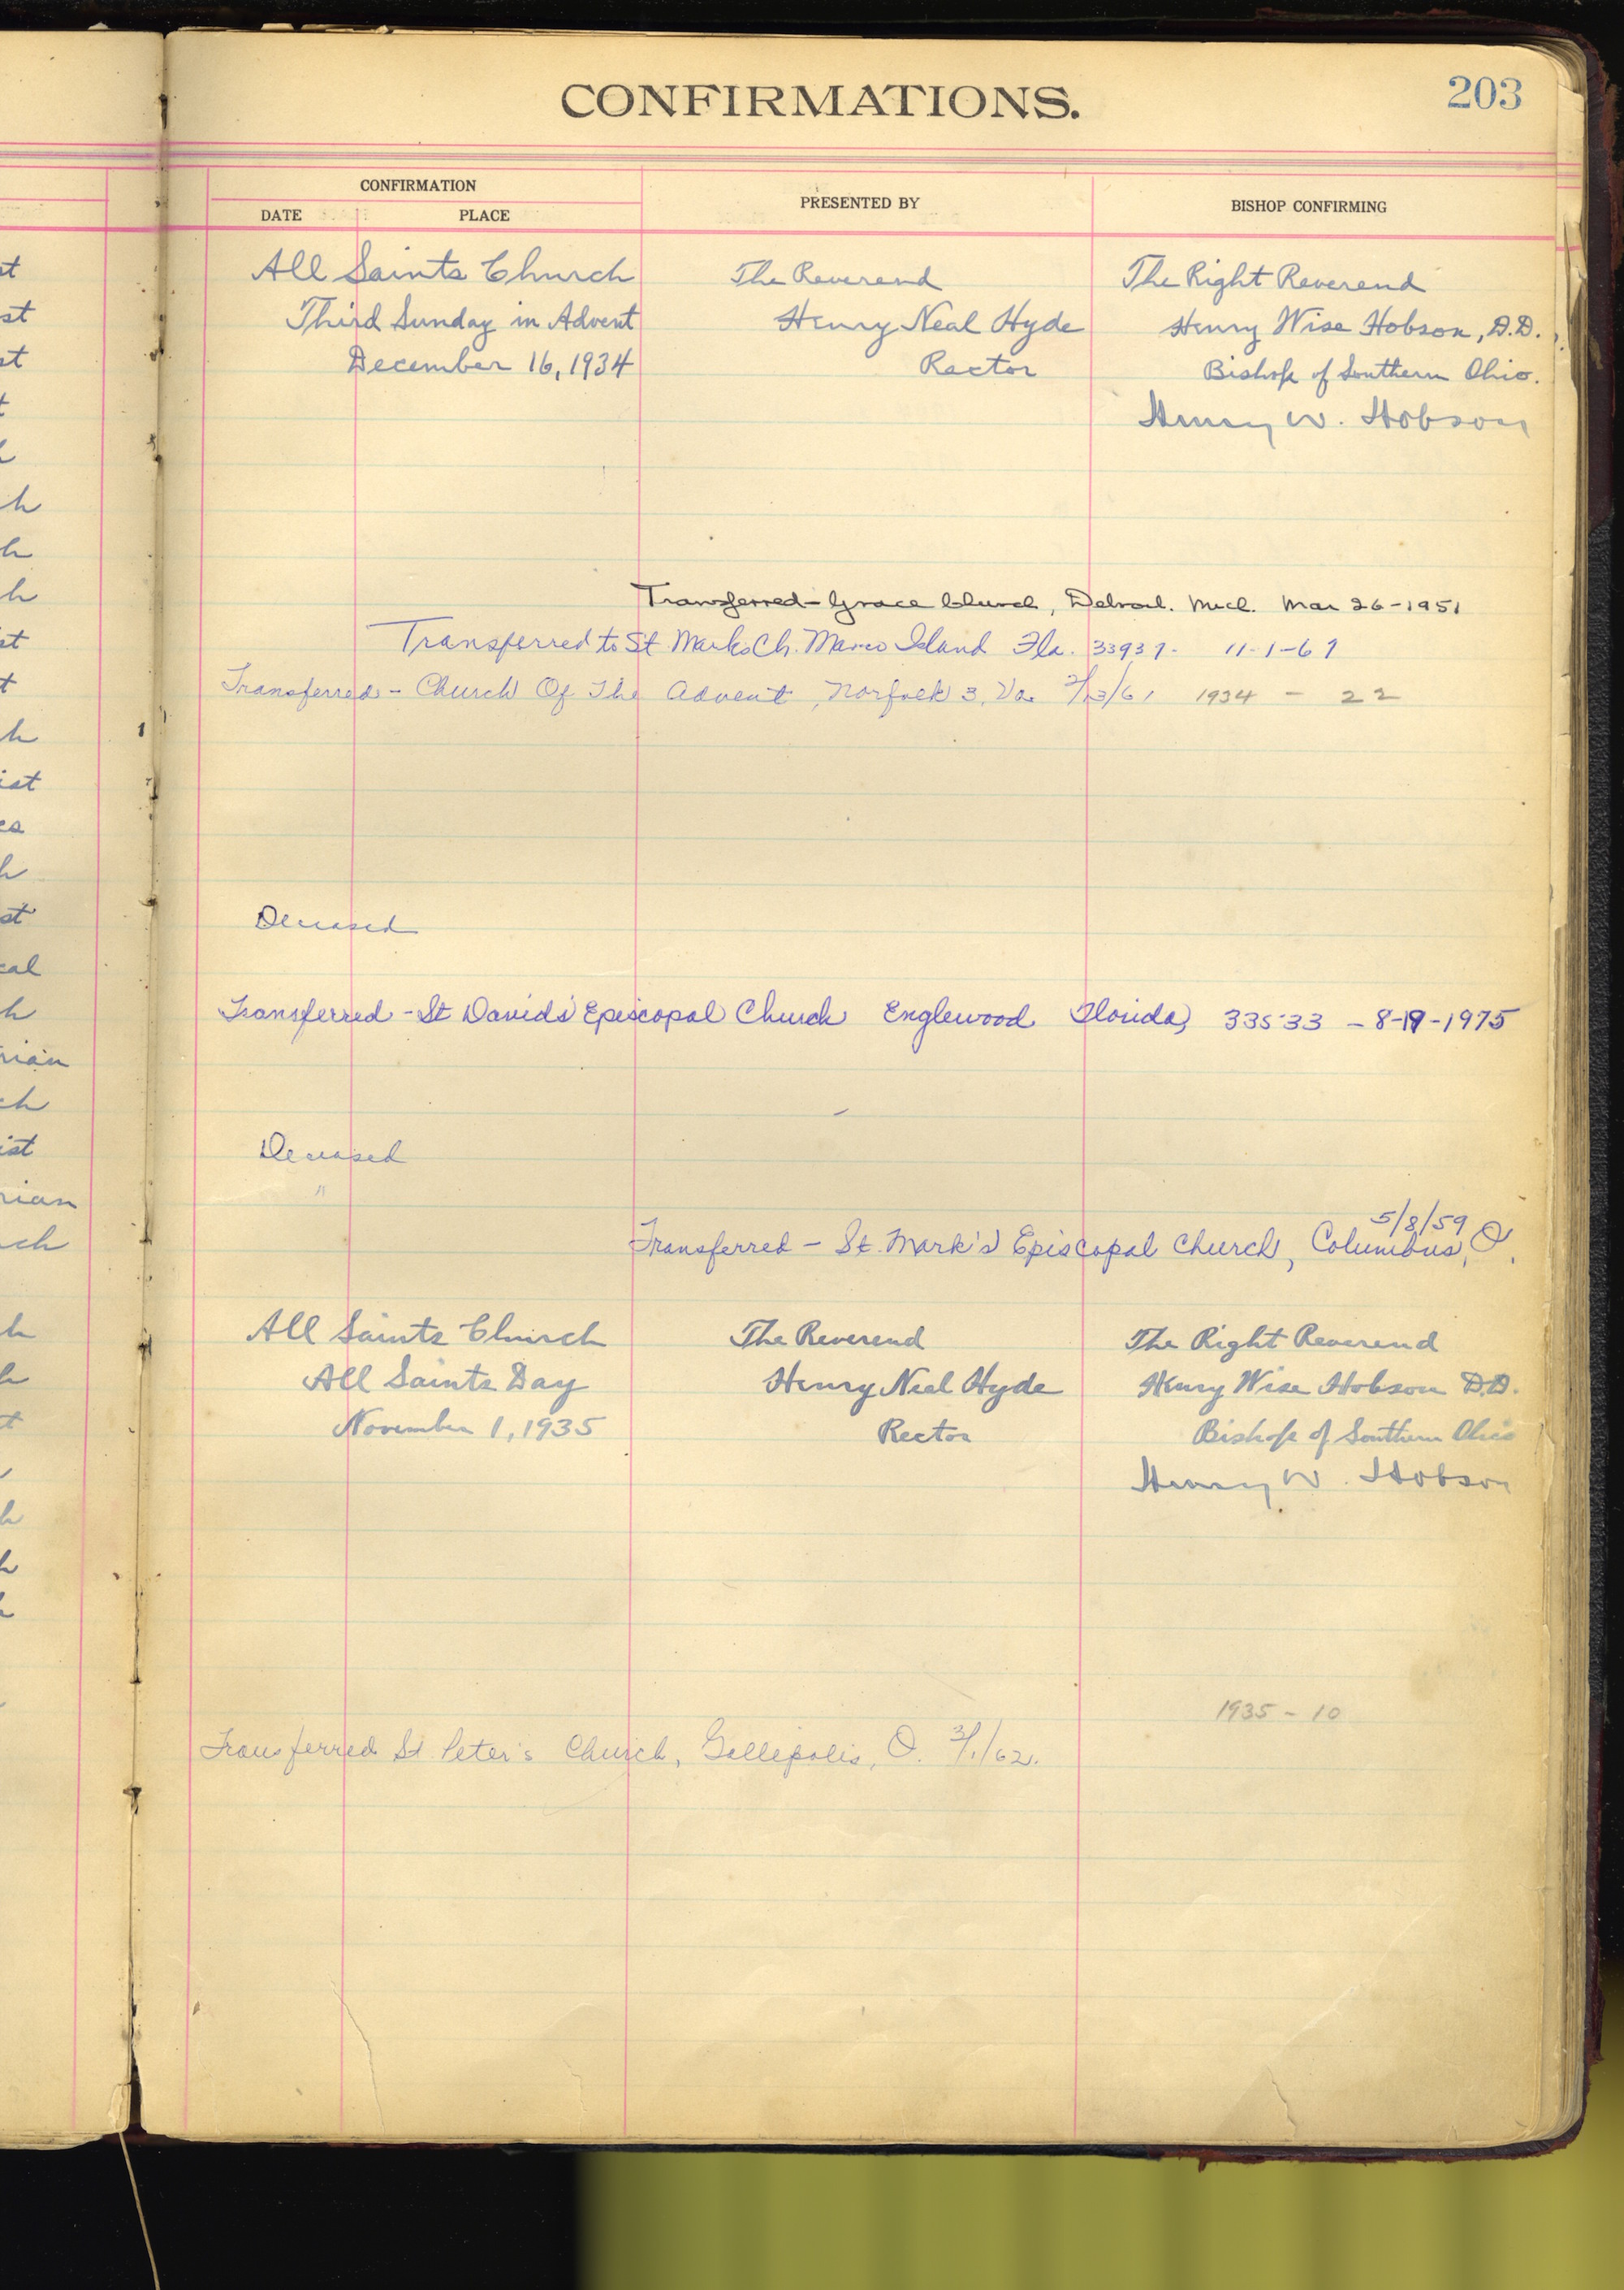 CONFIRMATIONS.
203
CONFIRMATION
DATE PLACE
PRESENTED BY
BISHOP CONFIRMING
All Saints Church The Reverend The Right Reverend
Third Sunday in Advent Henry Neal Hyde Henry Wise Hobson, D.D.
December 16, 1934 Rector Bishop of Southern Ohio.
Henry W. Hobson
Transferred - Grace Church, Detroit. Mich. Mar 26 - 1951
Transferred to St Marks Ch. Marco Island Fla. 33937 - 11-1-67
Transferred - Church Of The Advent, Norfolk 3, Va. 2/13/61 1934 - 22
Deceased
Transferred - St David's Episcopal Church Englewood Florida, 33533 - 8-19-1975
Deceased
"
5/8/59
Transferred - St. Mark's Episcopal Church, Columbus, O.
All Saints Church The Reverend The Right Reverend
All Saints Day Henry Neal Hyde Henry Wise Hobson D.D.
November 1, 1935 Rector Bishop of Southern Ohio
Henry W. Hobson
1935 - 10
Transferred St. Peter's Church, Gallipolis, O. 3/1/62.